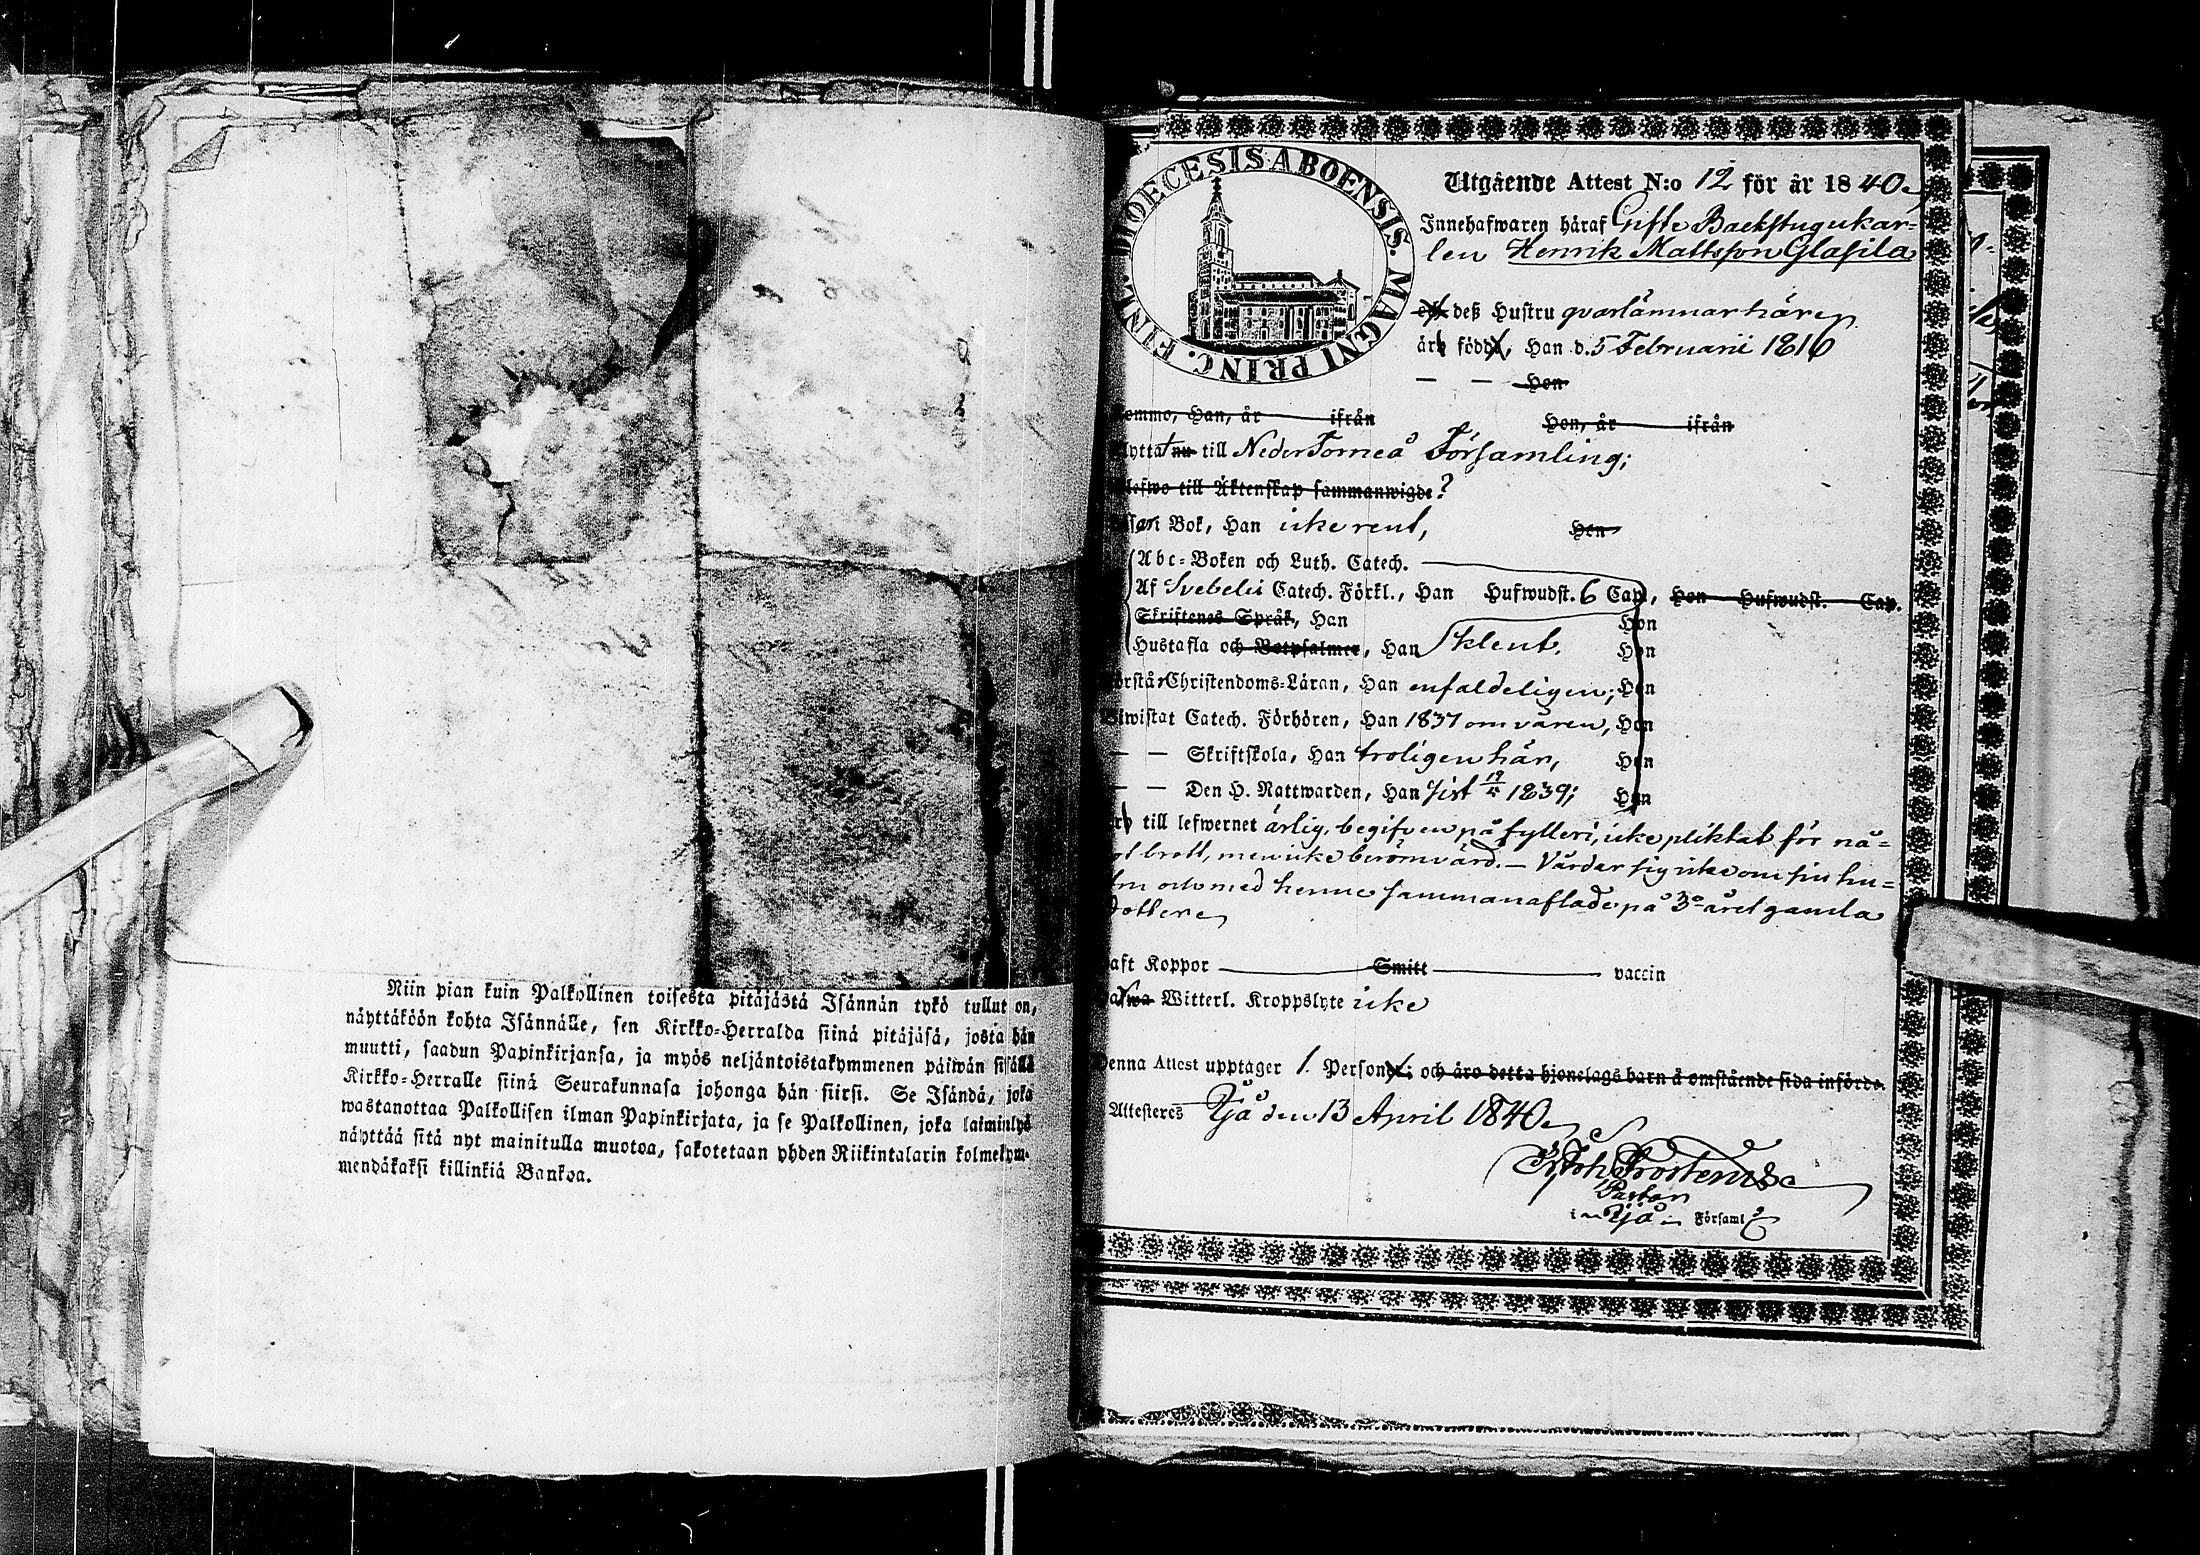 Niin pian kuin Palkollinen toisesta pitäjästä Isännän tykö tullut on,
näyttäköön kohta Isännälle, sen Kirkko-Herralda siinä pitäjäsä, josta hän
muutti, saadun Papinkirjansa, ja myös neljäntoistakymmenen päiwän sisällä
Kirkko-Herralle siinä Seurakunnasa johonga hän siirsi. Se Isändä, joka
wastanottaa Palkollisen ilman Papinkirjata, ja se Palkollinen, joka laiminlyö
näyttää sitä nyt mainitulla muotoa, sakotetaan yhden Riikintalarin kolmekym-
mendäkaksi killinkiä Bankoa.
DIOECESIS ABOENSIS. MAGNI PRINC. FINL.
Utgående Attest N:o 12 för år 1840.
Innehafwaren häraf Gifte Backstugukar-
len Henrik Mattsson Glasila
och deß Hustru qvarlämnar här
är född, Han d. 5 Februarii 1816
— — Hon
komme, Han, år ifrån Hon, år ifrån
flyttat nu till Neder Torneå Församling;
blefwo till Äktenskap sammanwigde?
läser i Bok, Han icke rent, Hon
Abc-Boken och Luth. Catech.
Af Svebelii Catech. Förkl., Han Hufwudst. 6 Cap., Hon Hufwudst. Cap.
Skriftenes Språk, Han Hon
Hustafla och Botpsalmer, Han klent. Hon
förstår Christendoms-Läran, Han enfaldeligen; Hon
Biwistat Catech. Förhören, Han 1837 om våren, Hon
— — Skriftskola, Han troligen här, Hon
— — Den H. Nattwarden, Han sist 1839; Hon
till lefwernet ärlig, begifven på fylleri, icke pliktat för nå=
got brott, men icke berömvärd. — Vårdar sig icke om sin hu=
stru och med henne sammanaflade på 3e året gamla
dotter
haft Koppor Smitt vaccin
hafwa Witterl. Kroppslyte icke
Denna Attest upptager 1. Person; och äro detta hjonelags barn å omstående sida införde.
Attesteres Ijå den 13 April 1840.
Joh Frosterus
Pastor
i Ijå Församl